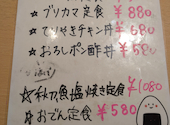 ☆ブリカマ定食 ¥880
☆てりやきチキン丼 ¥680
☆おろしポン酢丼 ¥580
☆秋刀魚塩焼き定食 ¥1080
☆おでん定食 ¥580